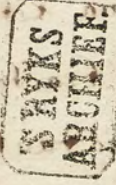 'S RYKS
ARCHIEF.